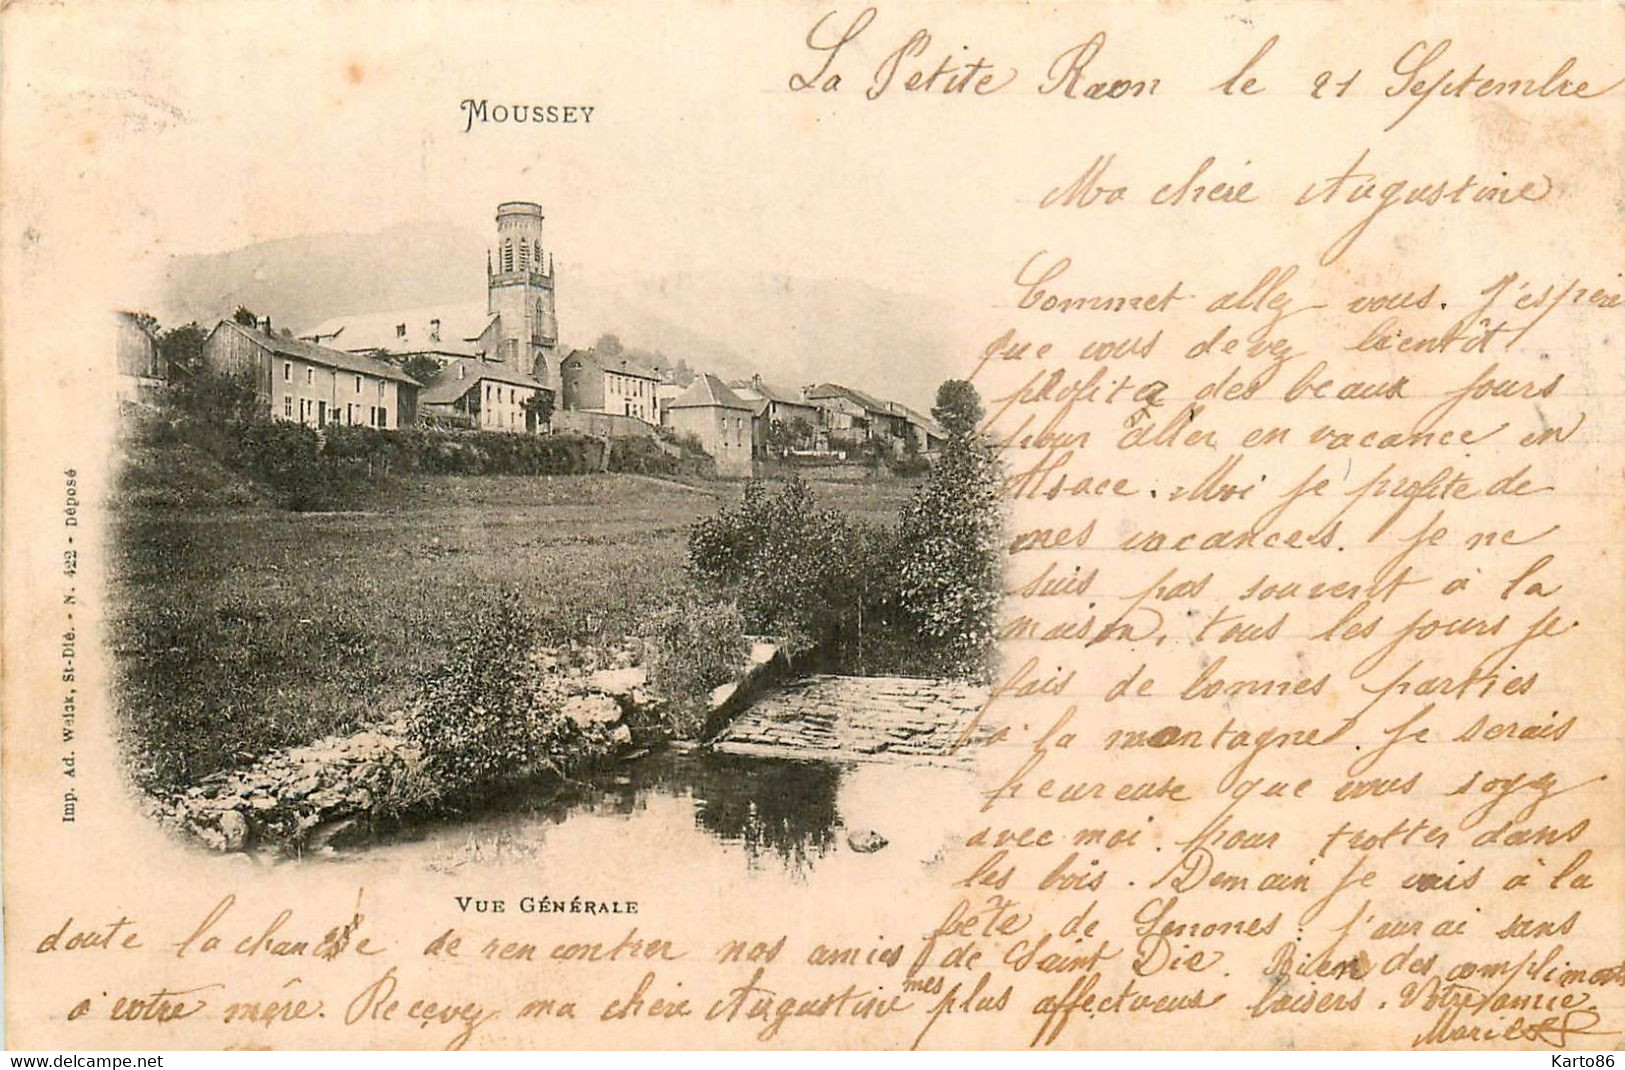 MOUSSEY
La Petite Raon le 21 Septembre
Ma chère Augustine
Commet allez vous. J'espère
que vous devez bientôt
profiter des beaux jours
pour aller en vacance en
Alsace. Moi je profite de
mes vacances. Je ne
suis pas souvent à la
maison, tous les jours je
fais de bonnes parties
à la montagne. Je serais
heureuse que vous soyez
avec moi pour trotter dans
les bois. Demain je vais à la
fête de Senones. j'aurai sans
doute la chance de rencontrer nos amies de Saint Dié. Bien des compliments
à votre mère. Recevez ma chère Augustine mes plus affectueux baisers. Votre amie.
Marie
VUE GÉNÉRALE
Imp. Ad. Weick, St-Dié. - N. 422 - Déposé
www.delcampe.net
Karto86